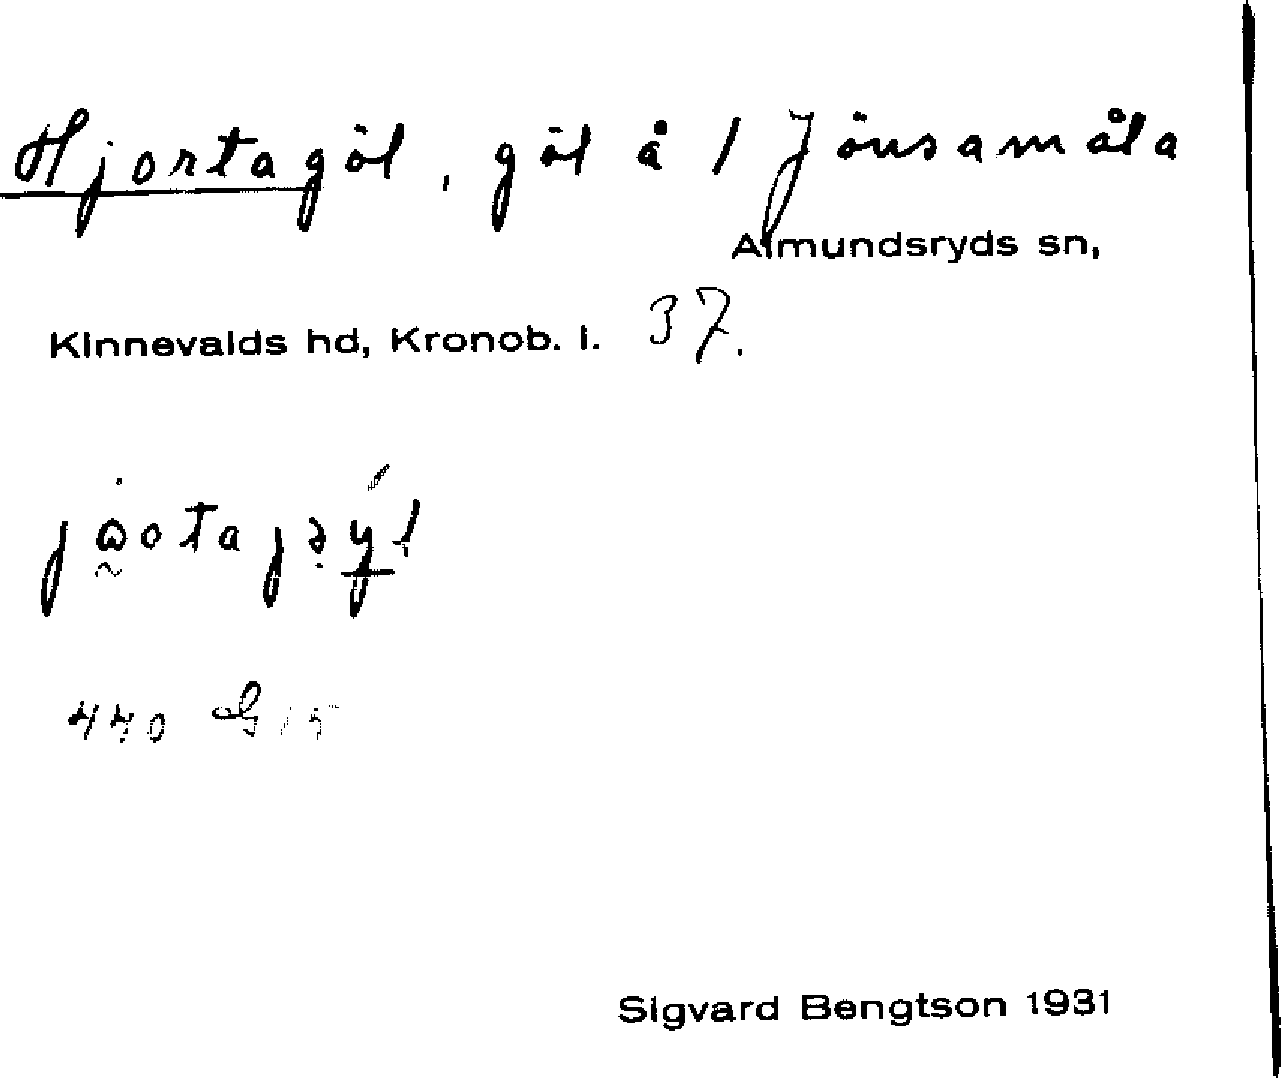 Hjortagöl, göl å 1 Jönsamåla
Almundsryds sn,
Kinnevalds hd, Kronob. l. 37.
Sigvard Bengtson 1931